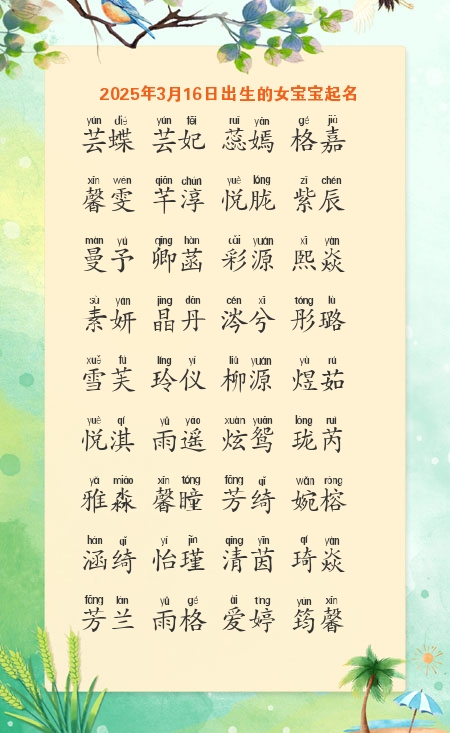 2025年3月16日出生的女宝宝起名
yún dié yún fēi ruǐ yān gé jiā
芸蝶 芸妃 蕊嫣 格嘉
xīn wén qiān chún yuè lóng zǐ chén
馨雯 芊淳 悦胧 紫辰
màn yú qīng hàn cǎi yuán xī yàn
曼予 卿菡 彩源 熙焱
sù yán jīng dān cén xī tóng lù
素妍 晶丹 涔兮 彤璐
xuě fú líng yí liǔ yuán yù rú
雪芙 玲仪 柳源 煜茹
yuè qí yǔ yáo xuàn yuān lóng ruì
悦淇 雨遥 炫鸳 珑芮
yǎ miǎo xīn tóng fāng qǐ wǎn róng
雅淼 馨曈 芳绮 婉榕
hán qǐ yí jǐn qīng yīn qí yàn
涵绮 怡瑾 清茵 琦焱
fāng lán yǔ gé ài tíng yún xīn
芳兰 雨格 爱婷 筠馨